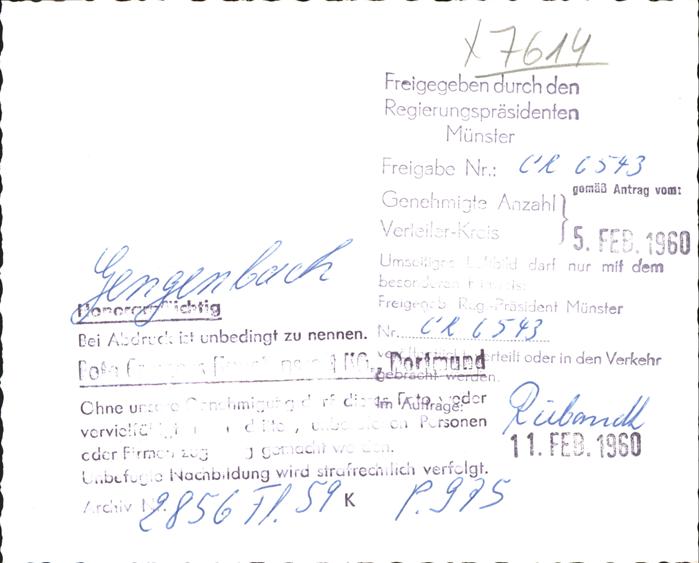 X 7614
Freigegeben durch den
Regierungspräsidenten
Münster
Freigabe Nr.: CR 6543
gemäß Antrag vom:
Genehmigte Anzahl
Verteiler-Kreis
5. FEB. 1960
Umseitiges Luftbild darf nur mit dem
besonderen
Freigegeb. Reg.-Präsident Münster
Nr. CR 6543
verteilt oder in den Verkehr
gebracht werden.
Im Auftrage:
11. FEB. 1960
Gengenbach
Honorarpflichtig
Bei Abdruck ist unbedingt zu nennen.
Foto KG., Dortmund
Ohne unsere Genehmigung darf dieses Foto weder
vervielfältigt unbefugten Personen
oder Firmen gemacht werden.
Unbefugte Nachbildung wird strafrechtlich verfolgt.
Archiv Nr. 2856 Fl. 59 K P. 975